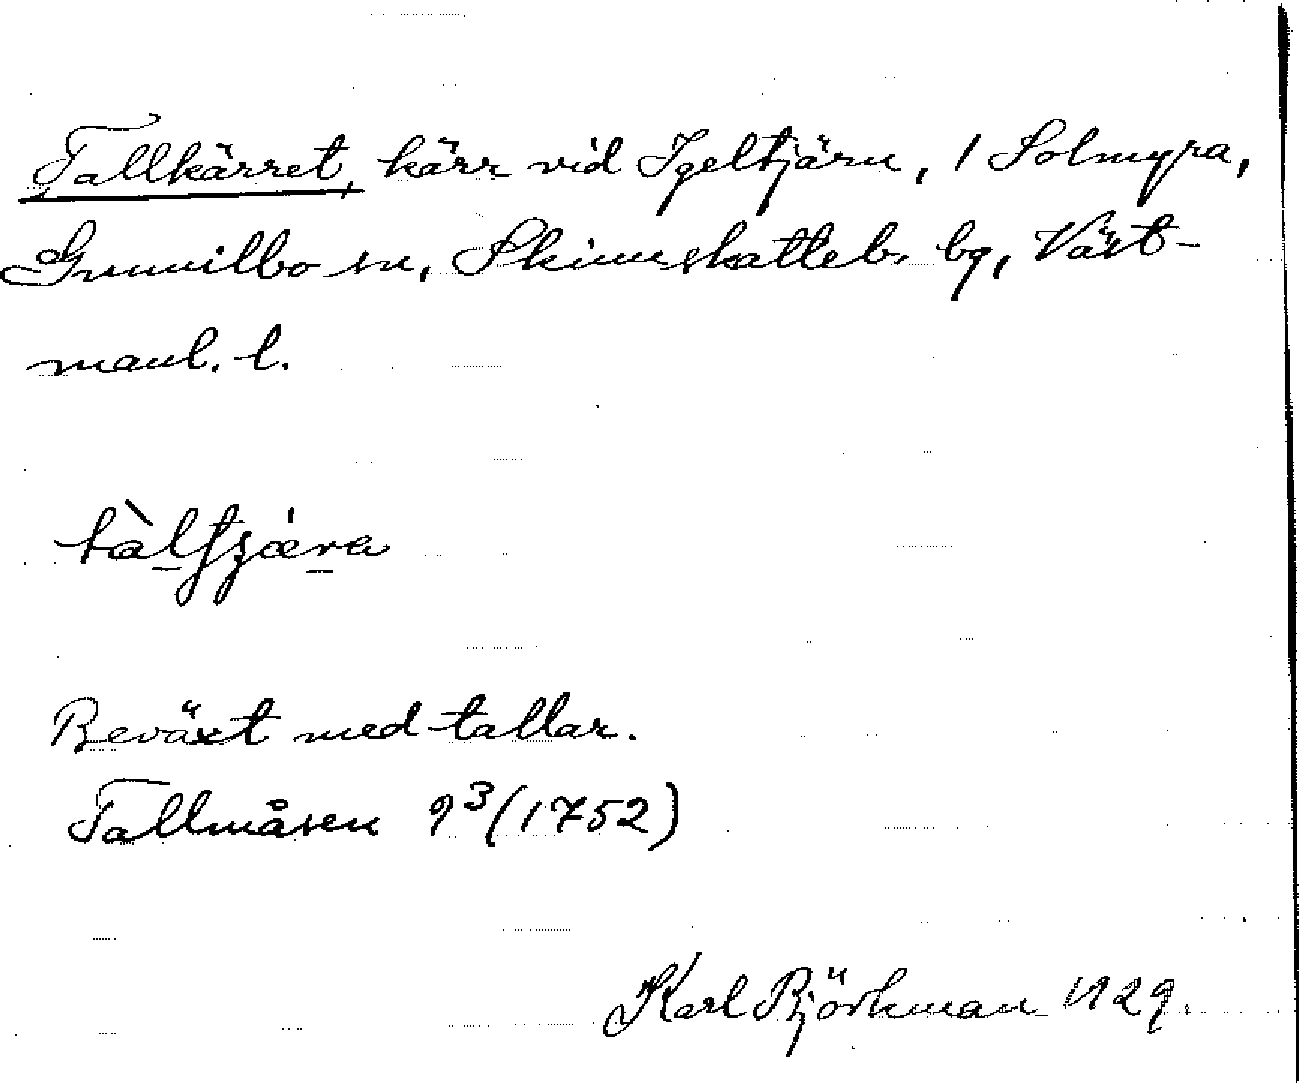 Tallkärret, kärr vid Igeltjärn, 1 Solmyra,
Gunnilbo sn, Skinnskatteb. bg, Väst-
manl. l.
Beväxt med tallar.
Tallmåsen 9³ (1752)
Karl Björkman 1929.